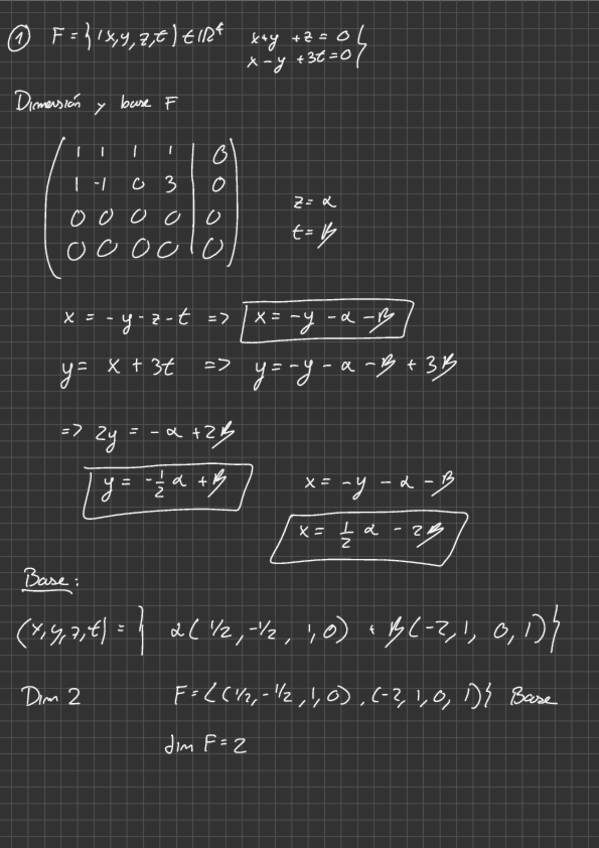 ① F = { (x,y,z,t) ∈ ℝ⁴ x+y +z = 0
x - y +3t = 0 }
Dimensión y base F
1 1 1 1 | 0
1 -1 0 3 | 0
0 0 0 0 | 0
0 0 0 0 | 0
z = α
t = β
x = -y - z - t => x = -y - α - β
y = x + 3t => y = -y - α - β + 3β
=> 2y = -α + 2β
y = -1/2 α + β
x = -y - α - β
x = 1/2 α - 2β
Base:
(x,y,z,t) = { α( 1/2, -1/2, 1, 0) + β (-2, 1, 0, 1) }
Dim 2 F = < (1/2, -1/2, 1, 0), (-2, 1, 0, 1) } Base
dim F = 2